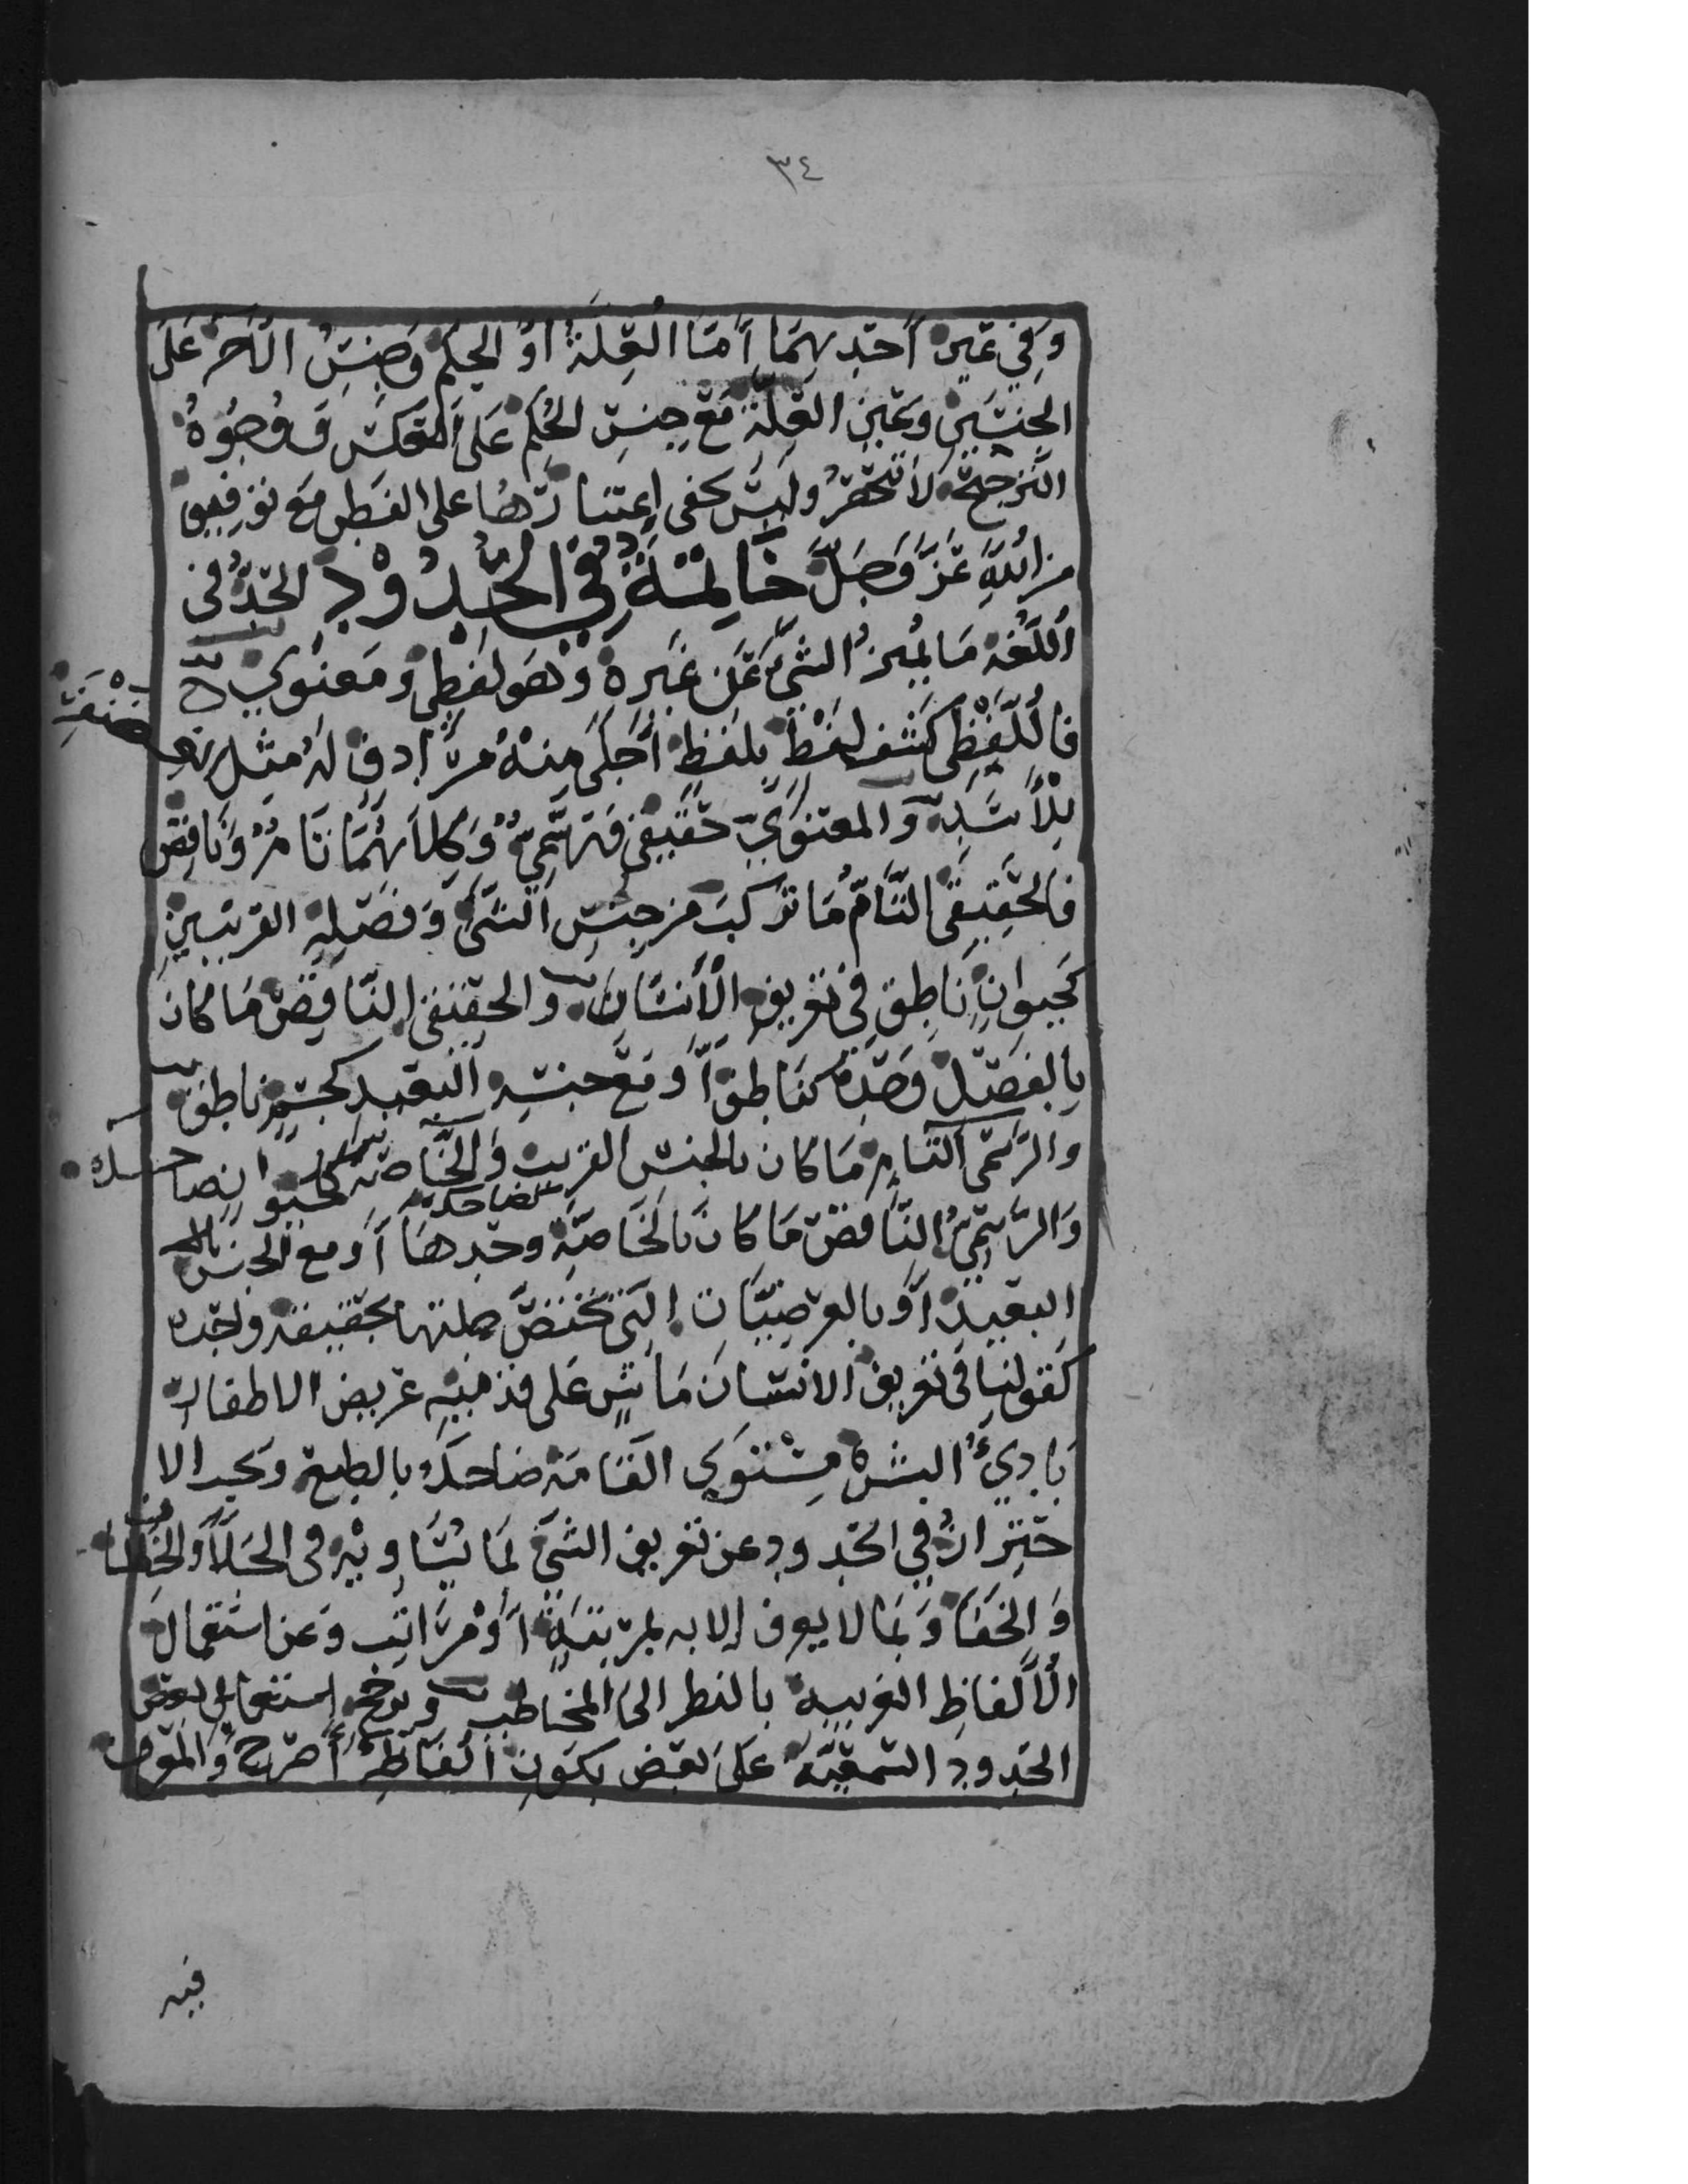 ٣٤
وَفِي عَين أَحَدِهِمَا إِمَّا العِلَّةُ أوِ الحكم وَجِنْسِ الآخَر عَلَى
الجِنسَينِ وَعَينِ العِلَّة مَعَ جِنسِ الحُكم عَلَى العَكسِ وَوُجُوهُ
التَّرجِيح لا تَنحَصِرُ وَلَيسَ يخفى اعتبَارُهَا على الفَطِن مَعَ توفِيقٍ
من اللهِ عَزَّ وَجَلَّ خَاتِمَةٌ فِي الحُدُوْدِ الحَدُّ في
اللُّغَة مَا يُميزُ الشَّيء عَن غَيرِهِ وَهَو لَفظِيٌّ وَمَعنَوِيٌّ
فَاللَّفظِي كَشف لَفْظٍ بِلَفظٍ أَجلَى مِنهُ مُرَادِفٍ لَهُ مثل
غَضَنْفَر
لِلأسَدِ وَالمعنَوِيُّ حَقِيقِي وَرَسْمِيٌّ وَكِلاهُمَا تَامٌّ وَنَاقِصٌ
فَالحَقِيقِي التَّامُّ مَا تَركبَ من جِنسِ الشَّيء وَفَصلِهِ القريبَينِ
كَحيوانٍ نَاطِقٍ فِي تَعريفِ الأنسَان وَالحقِيقِي النَّاقِصُ مَا كَان
بِالفَصلِ وَحدَهُ كنَاطِق أَو مَعَ جِنسِهِ البَعِيدِ كجسمٍ ناطِقٍ
والرَّسمي التَّام مَا كان بالجنس القريب وَالخَاصَّةِ كحَيَوانٍ ضاحك
وَالرَّسمِيُّ النَّاقصُ مَا كَانَ بالخَاصَّةِ وحدهَا كالضاحك أَو مع الجنس
البعيدِ أَو بالعرضِيَّاتِ التِي تَختَصُّ جملتها بحَقِيقة واحدة
كَقولنَا في تعريف الإنسَانِ مَاشٍ عَلى قدميه عريض الاظفار
بَادِيُ البشرة مُستَوِي القَامَة ضَاحك بالطبع ويجب الا
حتِرازُ في الحدود عن تعريف الشيء بمَا يُسَاوِيْهِ في الجَلاء
وَالخَفَاء وَبمَا لا يعرف إلا به بمرتبَةٍ أَوْ مَرَاتِب وَعن استعمال
الألفاظِ الغريبة بالنظر إلى المخاطب وَيرجح استعمال بعض
الحدود السمعيَّة عَلَى بَعضٍ بكَونِ ألفَاظِه أَصرَح وَالمعرف
فيه